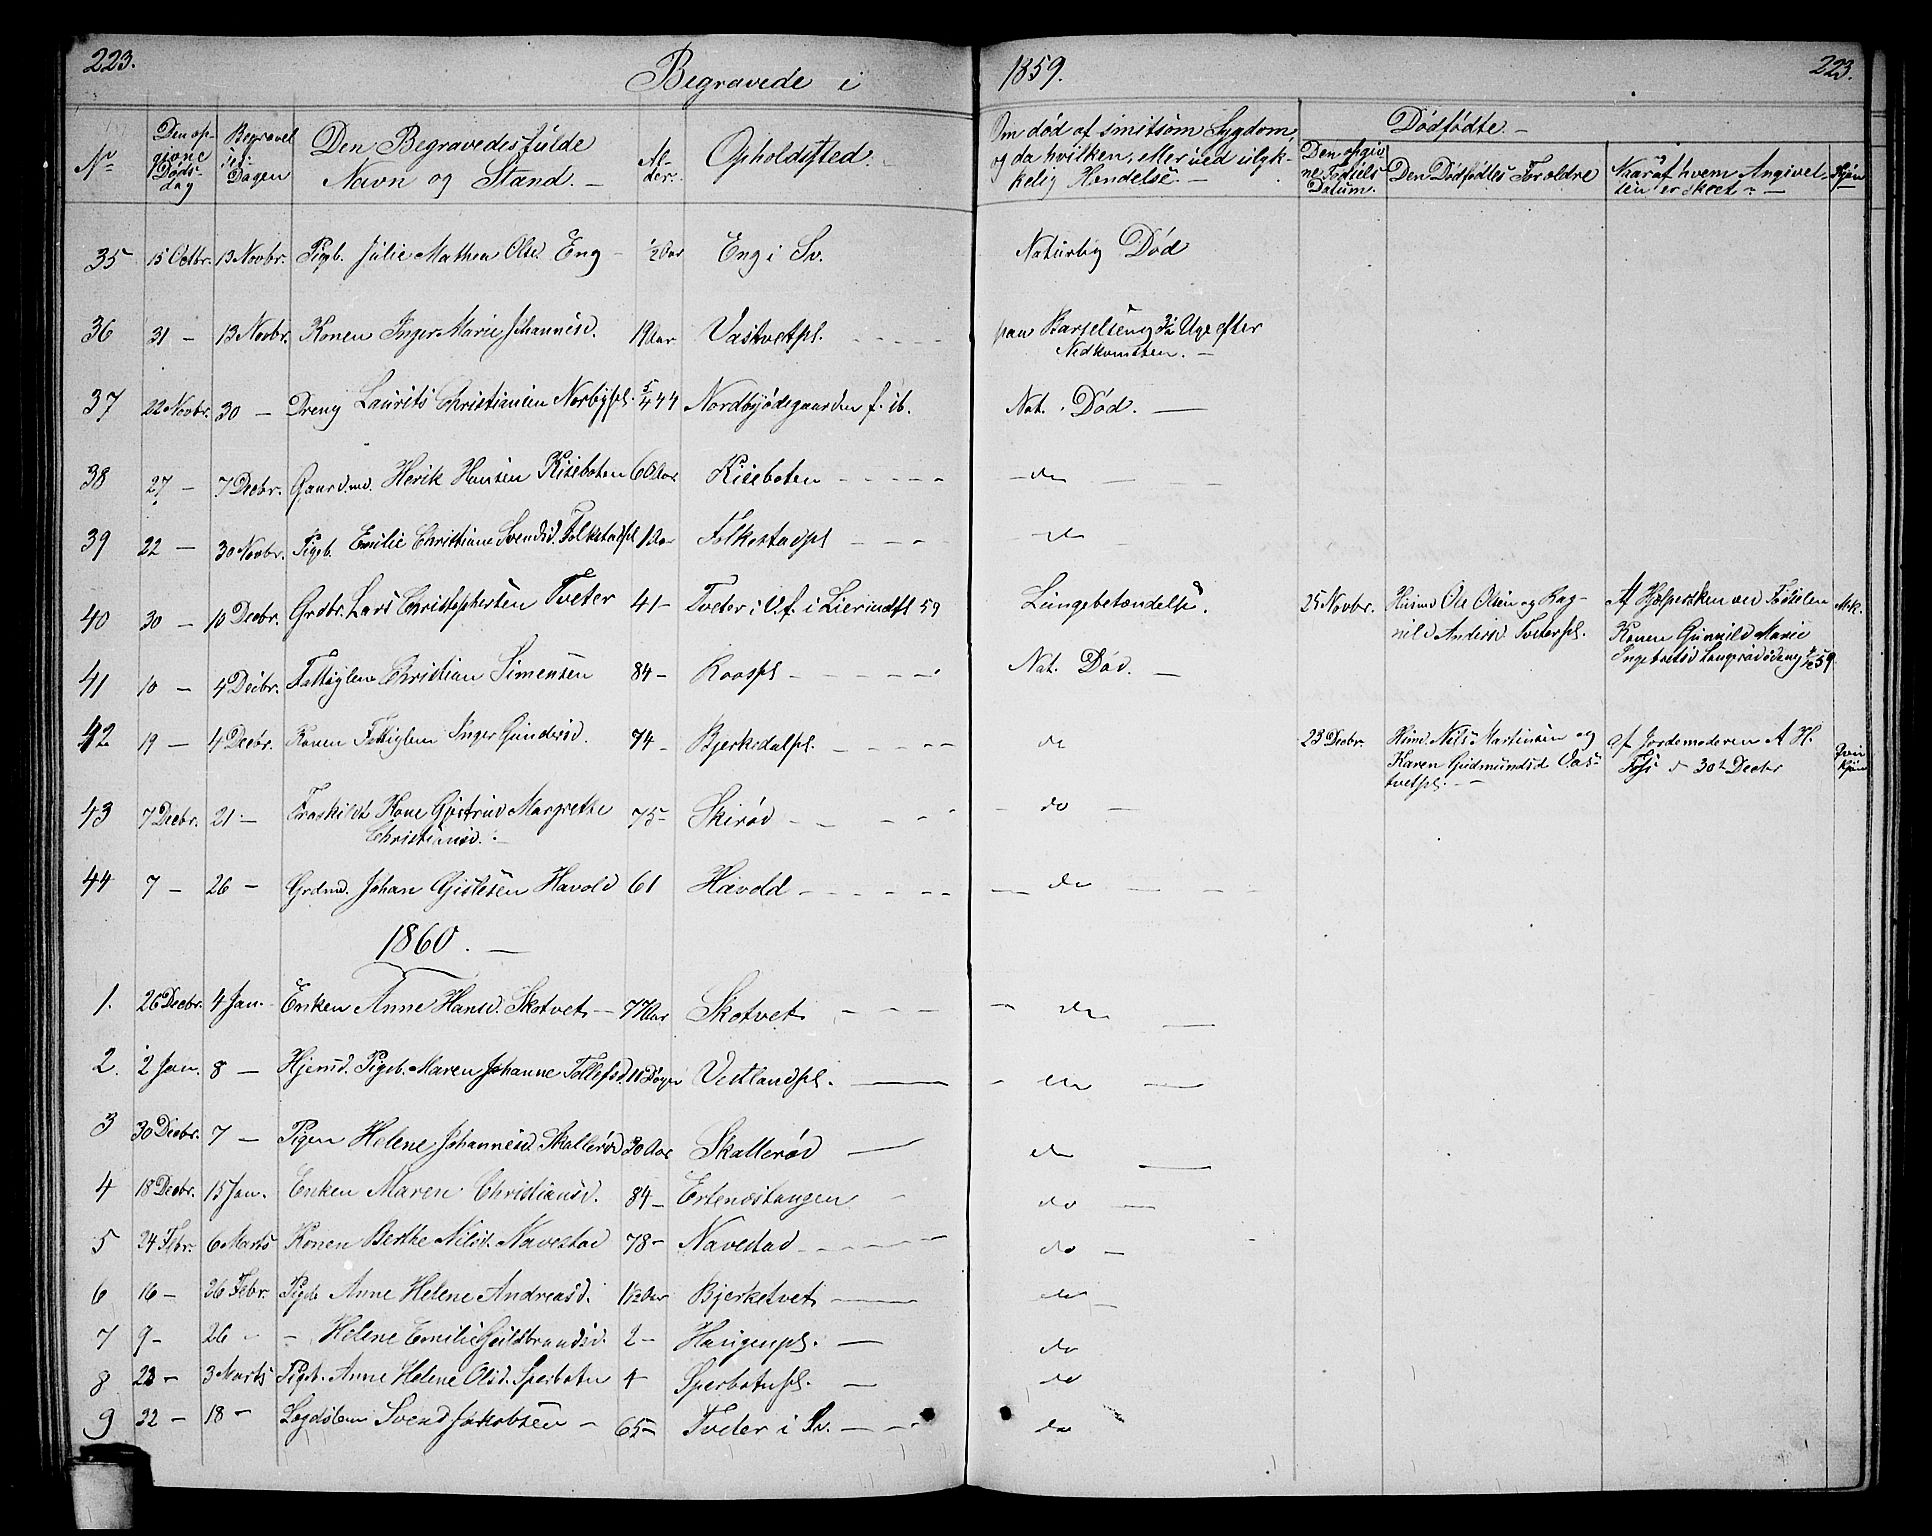 223.
Begravede i
1859.
223.
No
Den op-
givne
Døds-
dag
Begravel
ses-
Dagen
Den Begravedes fulde
Navn og Stand. -
Al-
der.
Opholdssted.
Om død af smitsom Sygdom,
og da hvilken, eller ved ulyk-
kelig Hændelse. -
Dødfødte. -
Den opgiv
ne Fødsels
Datum.
Den Dødfødtes Forældre
Naar og af hvem Angivel-
sen er skeet. -
Kjøn
35 15 Octbr. 13 Novbr. Pigeb. Julie Mathea Olsd. Eng - 1/2 Aar Eng i Sv. Naturlig Død
36 31 - 13 Novbr. Konen Inger Marie Johannesd. 19 Aar Vastvetpl. paa Barselseng 3/4 Uge efter
Nedkomsten. -
37 22 Novbr. 30 - Dreng Laurits Christiansen Norbypl. Nordbyødegaarden f. ib. Nat. Død. -
38 27 - 7 Decbr. Gaardmd. Henrik Hansen Kiseboten 60 Aar Kiseboten - do -
39 22 - 30 Novbr. Pigeb. Emilie Christiane Svendsd. Folkestadpl 1 Aar Folkestadpl - do
40 30 - 10 Decbr. Grdbr. Lars Christophersen Tveter 41 - Tveter i V. f. i Lier indfl 59 Lungebetændelse. 25 Novbr. Husmd Ole Olsen og Rag-
nild Andersd Tveterpl. Af Hjælpersken ved Fødselen
Konen Gunnild Marie
Ingebretsd Mk.
41 10 - 4 Decbr. Fattiglem Christian Simensen 84 - Roospl - Nat. Død. -
42 19 - 4 Decbr. Konen Fattiglem Inger Gundersd. 74 - Bjerkedalpl. - do 23 Decbr. Husmd. Nils Martinsen og
Karen Gudmundsd Vas-
tvetpl. - af Jordemoderen A H.
Foss d 30te Decbr Qvin
kjøn
43 7 Decbr. 21 - Fraskildt Kone Gjertrud Margrethe
Christiansd. - 75 - Skirød - do -
44 7 - 26 - Grdmd. Johan Gislesen Havold 61 Havold - do -
1860. -
1. 26 Decbr. 4 Jan. - Enken Anne Hansd. Skotvet - 77 Aar Skotvet - do -
2. 2 Jan. 8 - Hjemd. Pigeb. Maren Johanne Tollefsd. 11 Døgn Vestlandpl. - do -
3 30 Decbr. 7 - Pigen Helene Johannesd. Skallerød 30 Aar Skallerød - do -
4 18 Decbr. 15 Jan. Enken Maren Christiansd. 84 - Ertenstangen - do -
5 24 Febr. 6 Marts Konen Berthe Nilsd. Navestad 78 - Navestad - do -
6 16 - 26 Febr. Pigeb Anne Helene Andreasd. 1 1/2 Aar Bjerketvet - do -
7 9 - 26 - - Helene Emilie Guldbrandsd. 2 - Haugenpl. - do
8 23 - 3 Marts Pigeb. Anne Helene Olsd. Sperboten 4 - Sperbotenpl. - do
9 22 - 18 - Legdslem Svend Jakobsen - 65 - Tveter i Sv. - do